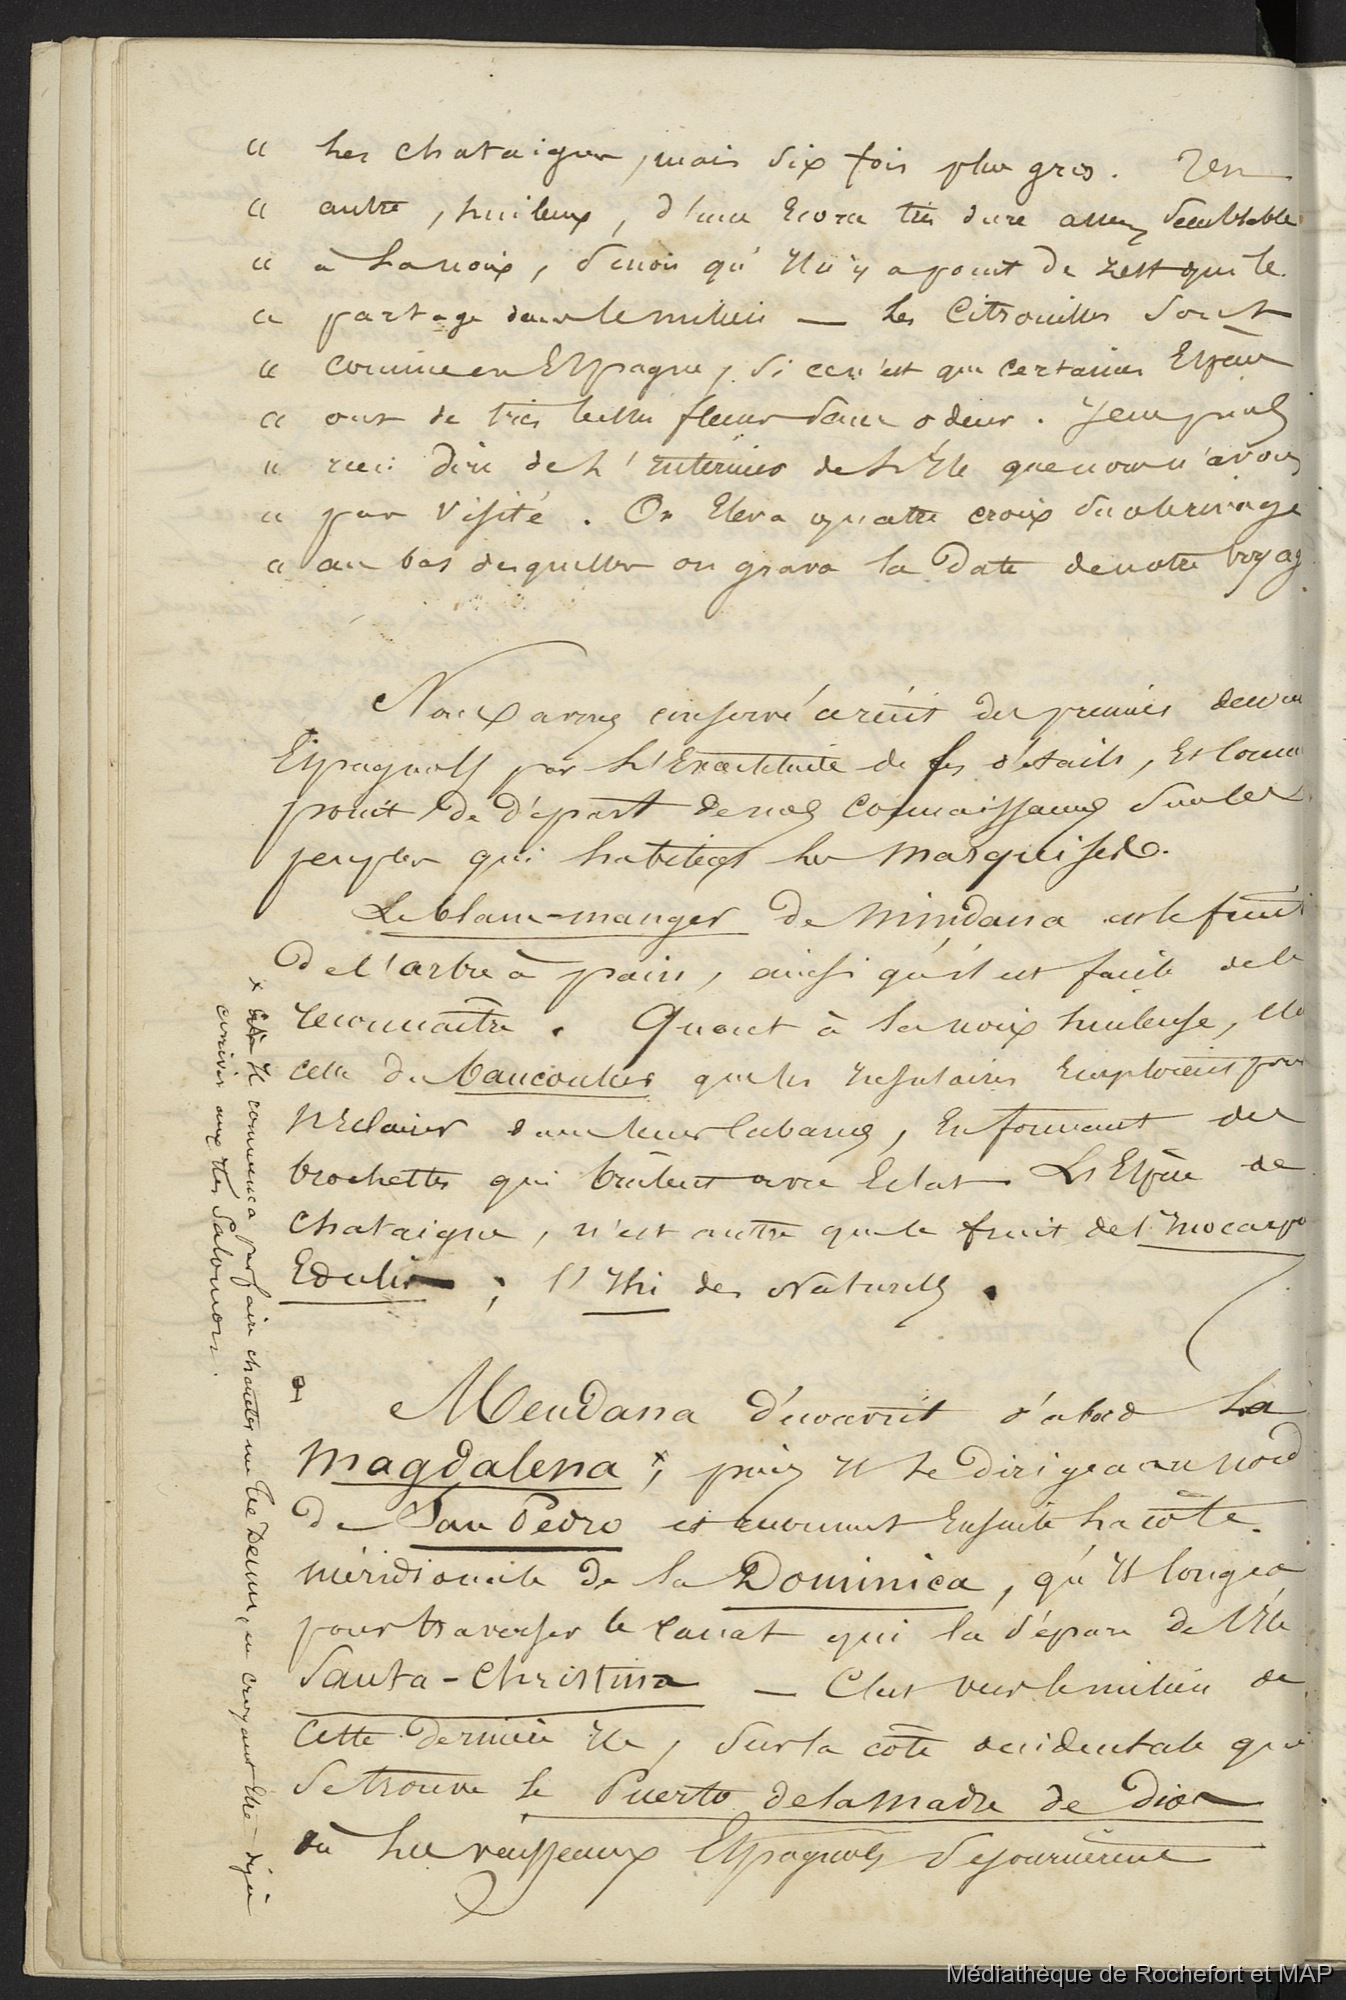 « les chataignes, mais six fois plus gros. Un
« autre, huileux, d'une Ecorce très dure assez semblable
« à la noix, sinon qu'il n'y a point de zest qui le
« partage dans le milieu — les Citrouilles sont
« comme en Espagne, si ce n'est que certaines Espèces
« ont de très belles fleurs sans odeur. Je ne puis
« rien dire de l'intérieur de l'île que nous n'avons
« pas visité. On éleva quatre croix sur le rivage
« au bas desquelles on grava la Date de notre voyag
Nous avons conservé ce récit des premiers
Espagnols par l'Exactitude de ses détails, Et comme
point de départ de nos connaissances sur les
peuples qui habitent les marquises.
Le blanc-manger de Mindana est le fruit
de l'arbre à pain, ainsi qu'il est facile de le
reconnaître. Quant à la noix huileuse,
celle du bancoulier que les insulaires Employaient pour
s'éclairer dans leurs cabanes, En formant des
brochettes qui brûlent avec Eclat. L'Espèce de
chataigne, n'est autre que le fruit de l'inocarpe
Edulis ; l'ihi des Naturels.
Mendana découvrit d'abord la
Magdalena x, puis il se dirigea au nord
de San Pedro et ensuite la côte
méridionale de la Dominica, qu'il longea
pour traverser le canal qui la sépare de l'île
Santa-Christina — C'est vers le milieu de
cette dernière île, sur la côte occidentale que
se trouve le Puerto de la Madre de Dios
où les vaisseaux Espagnols séjournèrent
x Il commença par faire chanter un Te Deum, en croyant être déjà
arrivé aux îles Salomon.
Médiathèque de Rochefort et MAP